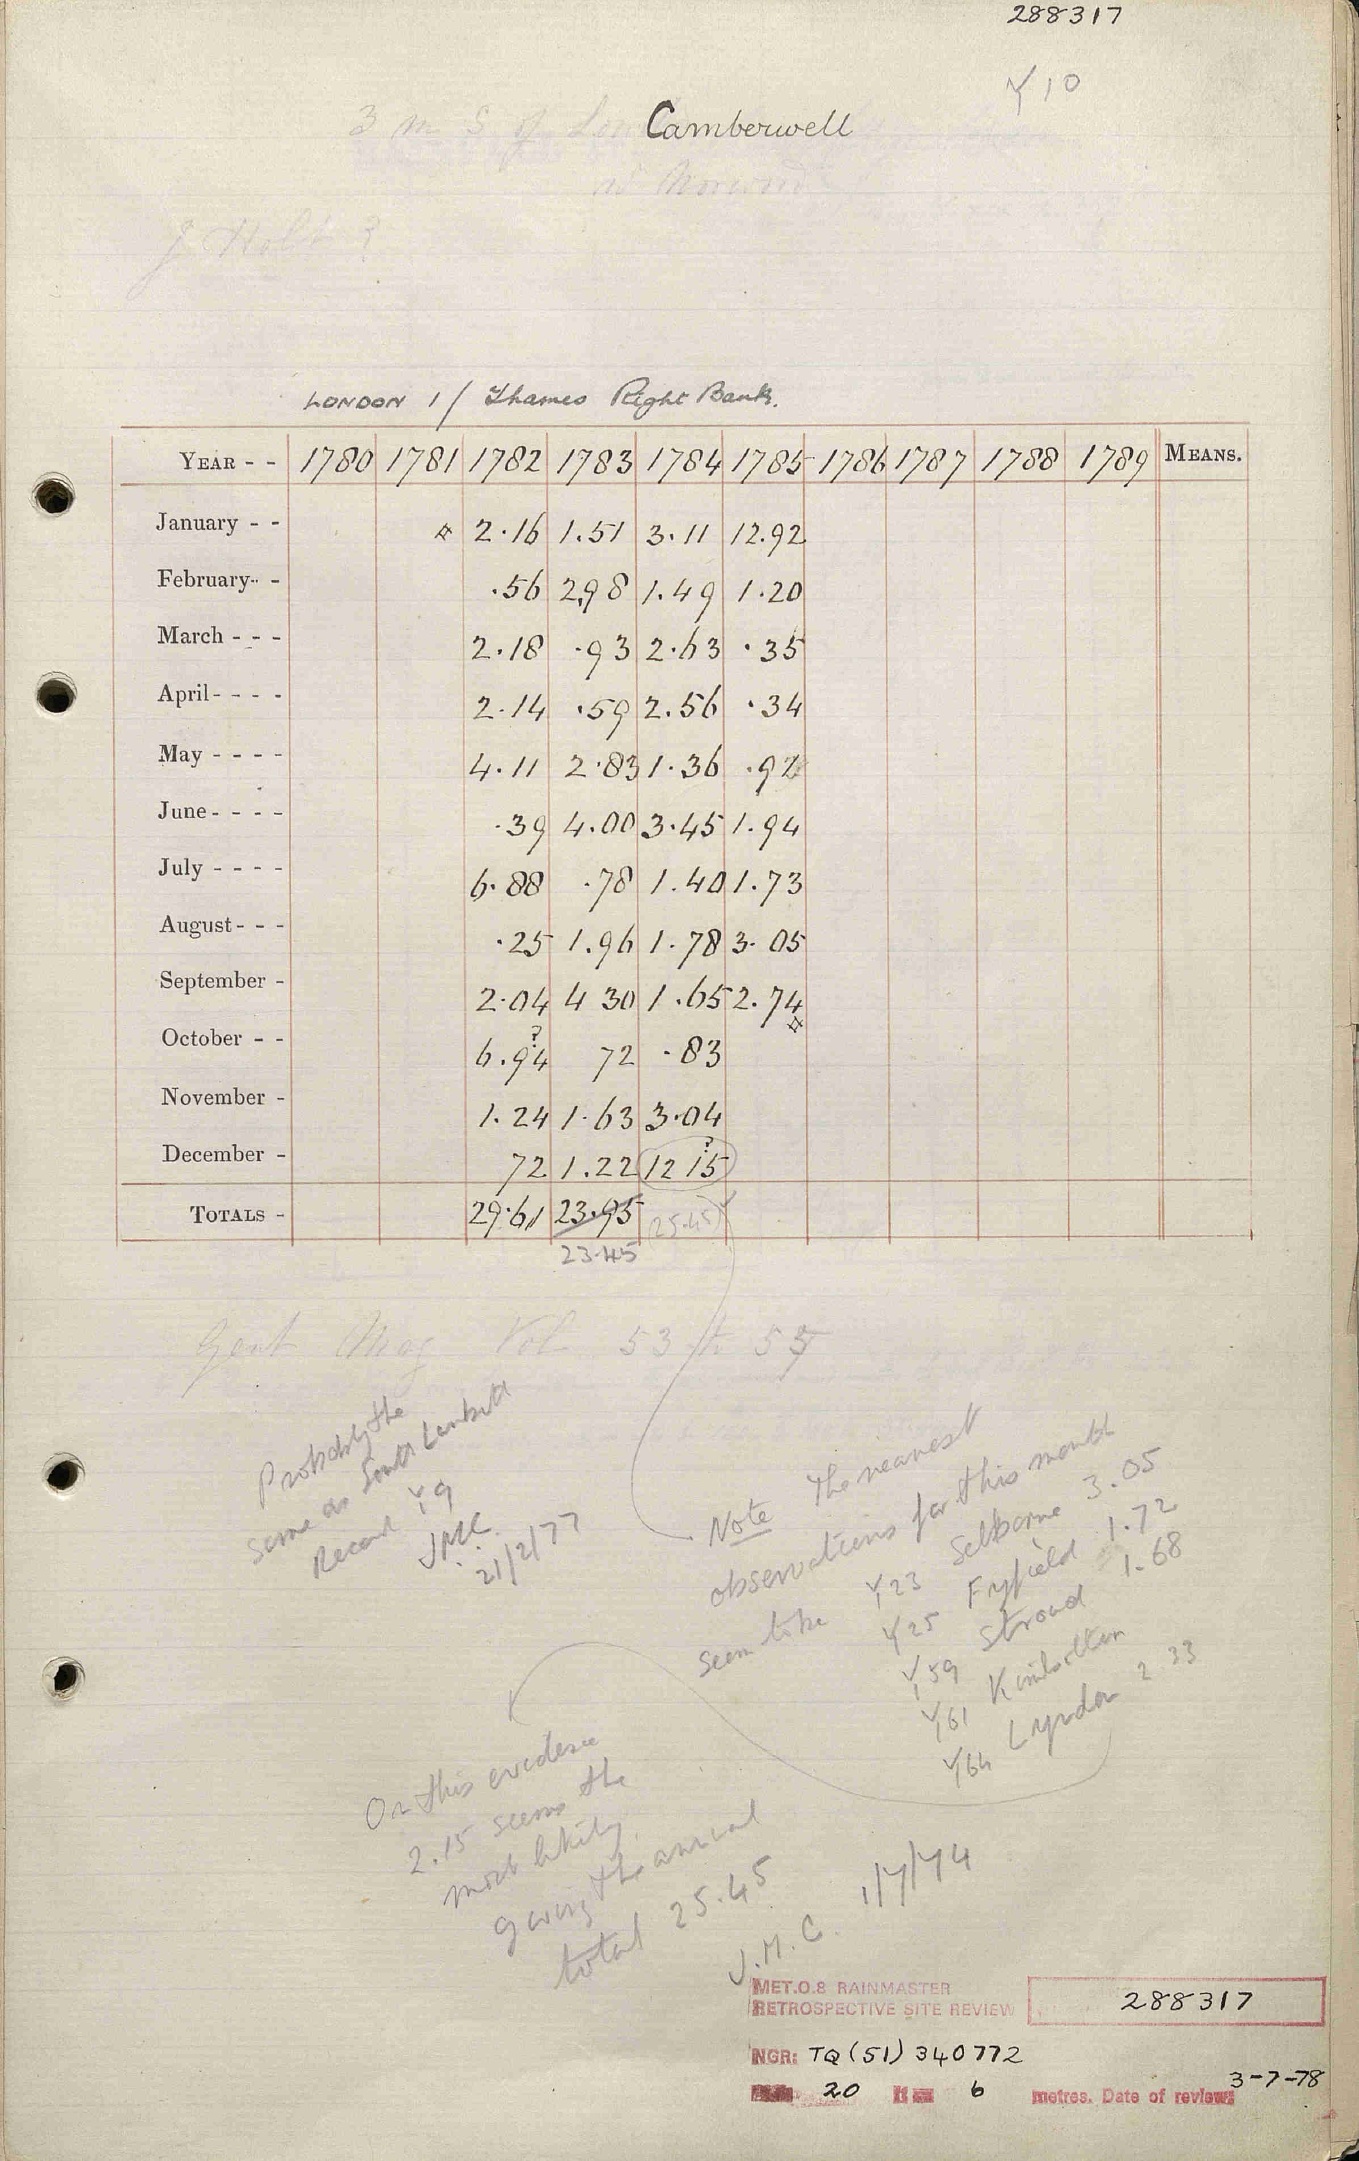 288317
Y10
3 m S of Lon
Camberwell
nr Norwood
J Holt ?
LONDON 1 / Thames Right Bank.
YEAR - - 1780 1781 1782 1783 1784 1785 1786 1787 1788 1789 MEANS.
January - - ¤ 2.16 1.51 3.11 12.92
February - - .56 2.98 1.49 1.20
March - - - 2.18 .93 2.63 .35
April - - - - 2.14 .59 2.56 .34
May - - - - 4.11 2.83 1.36 .92
June - - - - .39 4.00 3.45 1.94
July - - - - 6.88 .78 1.40 1.73
August - - - .25 1.96 1.78 3.05
September - 2.04 4 30 1.65 2.74 ¤
October - - 6.94 ? 72 .83
November - 1.24 1.63 3.04
December - 72 1.22 12 15 ?
TOTALS - 29.61 23.95 (25.45)
23.45
Gent Mag Vol 53 to 55
Probably the
same as South Lambeth
Record Y9
JMC.
21/2/77
Note The nearest
observations for this month
seem to be Y23 Selborne 3.05
Y25 Fyfield 1.72
Y59 Stroud 1.68
Y61 Kimbolton
Y64 Lyndon 2 33
On this evidence
2.15 seems the
most likely
giving the annual
total 25.45
J.M.C. 1/7/74
MET.O.8 RAINMASTER
RETROSPECTIVE SITE REVIEW 288317
NGR: TQ (51) 340772
20 6 metres. Date of review: 3-7-78